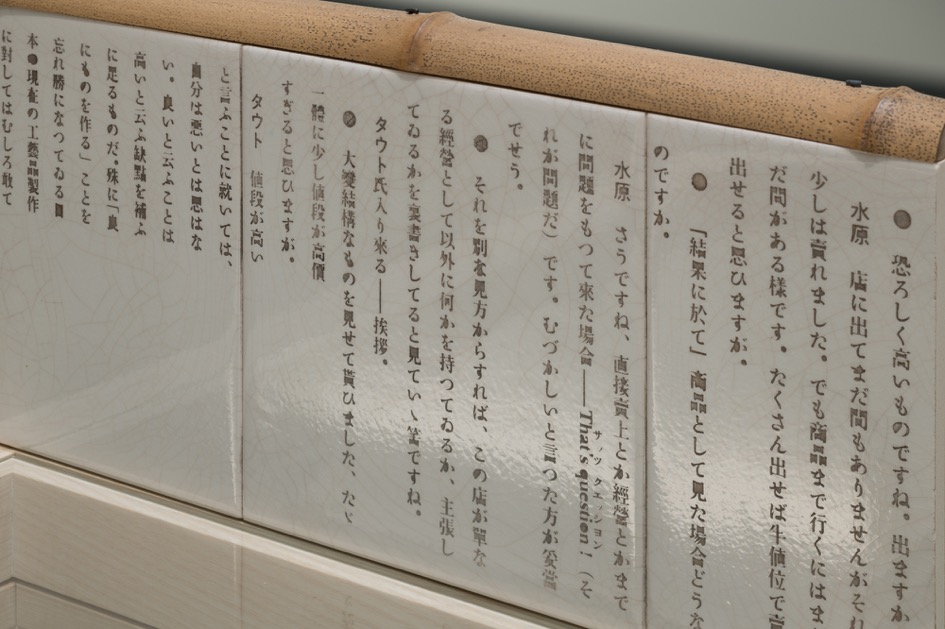 ● 恐ろしく高いものですね。出ますか
水原 店に出てまだ間もありませんがそれ
少しは賣れました。でも商品まで行くにはま
だ間がある様です。たくさん出せば半値位で賣
出せると思ひますが。
● 「結果に於て」商品として見た場合どうな
のですか。
水原 さうですね、直接賣上とか經營とかまで
に問題をもつて來た場合――That's question！（そ
サッツ クエッション
れが問題だ）です。むづかしいと言つた方が妥當
でせう。
● それを別な見方からすれば、この店が單な
る經營として以外に何かを持つてゐるか、主張し
てゐるかを裏書きしてると見ていゝ筈ですね。
タウト氏入り來る――挨拶。
● 大變結構なものを見せて貰ひました、たゞ
一體に少し値段が高價
すぎると思ひますが。
タウト 値段が高い
と言ふことに就いては、
自分は悪いとは思はな
い。良いと云ふことは
高いと云ふ缺點を補ふ
に足るものだ。殊に「良
にものを作る」ことを
忘れ勝になつてゐる日
本の現在の工藝品製作
に對してはむしろ敢て